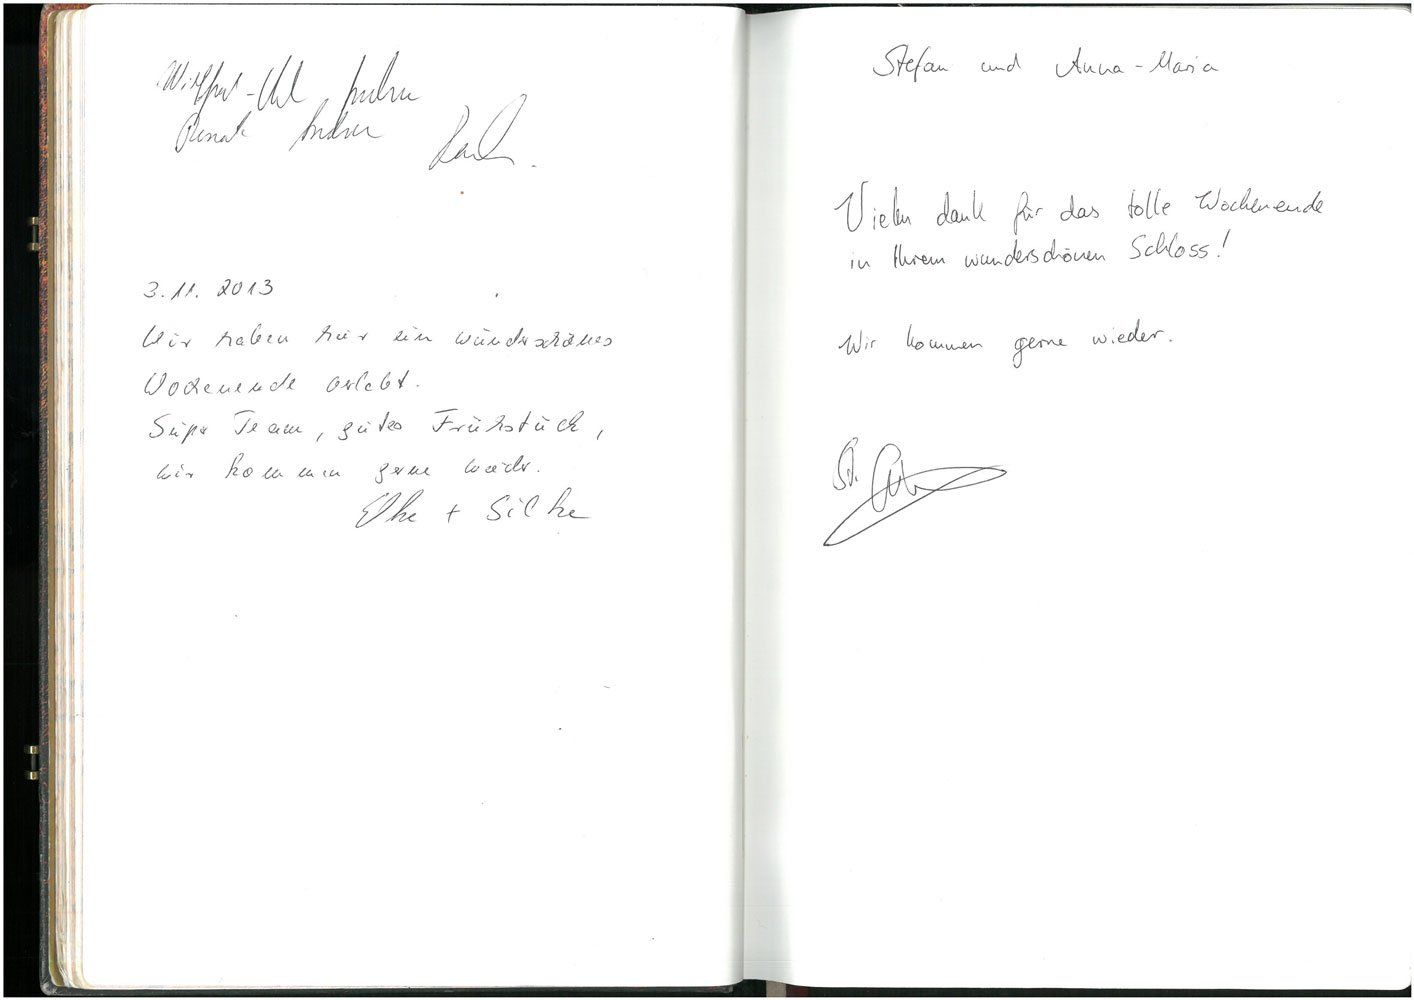 3.11.2013
Wir haben hier ein wunderschönes
Wochenende erlebt.
Super Team, gutes Frühstück,
wir kommen gerne wieder.
Elke + Silke
Stefan und Anna-Maria
Vielen dank für das tolle Wochenende
in Ihrem wunderschönen Schloss!
Wir kommen gerne wieder.
St.